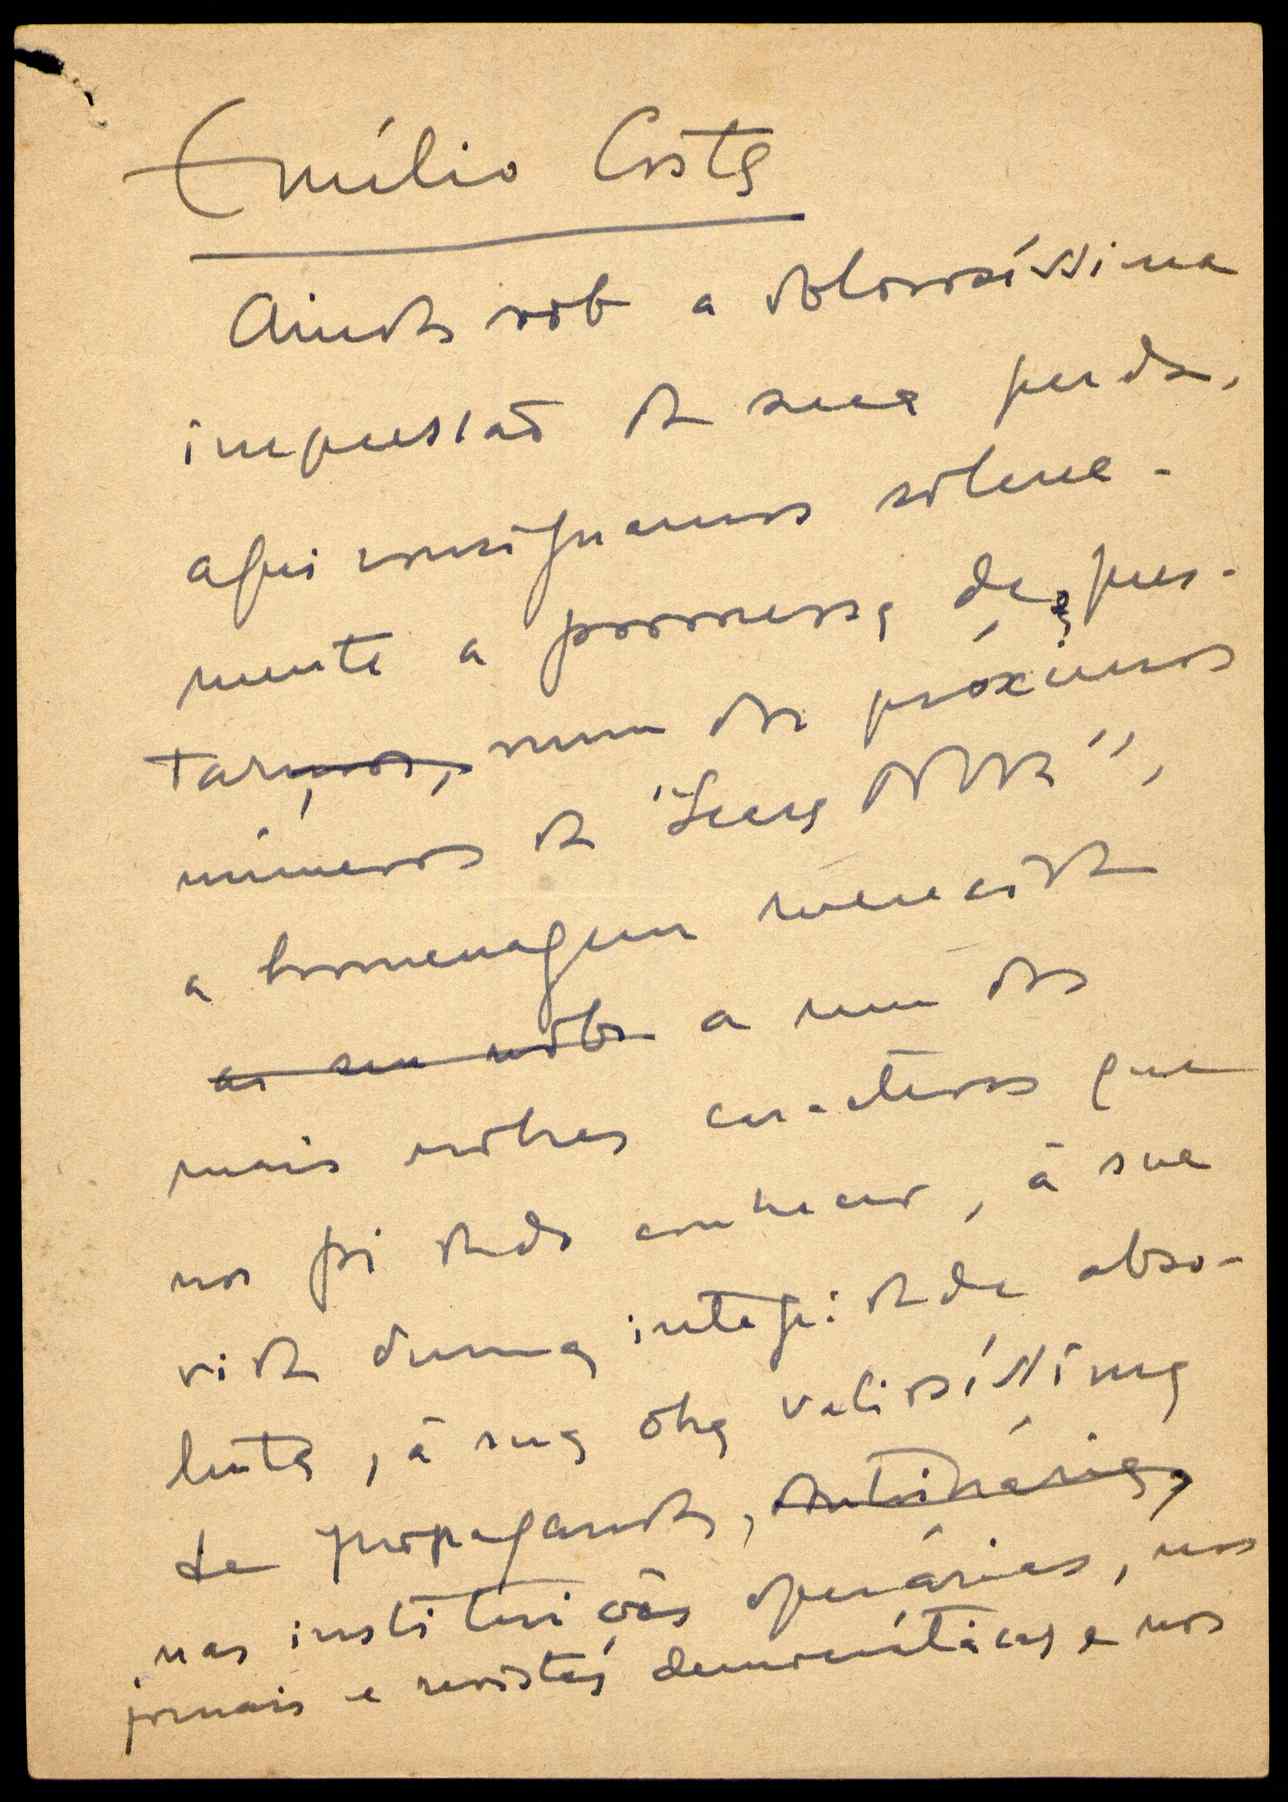 Emílio Costa
Ainda sob a dolorosíssima
impressão da sua perda,
aqui consignamos solene-
mente a promessa de pres-
tarmos, num dos próximos
números da "Seara Nova",
a homenagem merecida
ao seu nobre a um dos
mais nobres caracteres que
nos foi dado conhecer, à sua
vida duma integridade abso-
luta, à sua obra valiosíssima
de propaganda, doutrinária,
nas instituições operárias, nos
jornais e revistas democráticas e nos